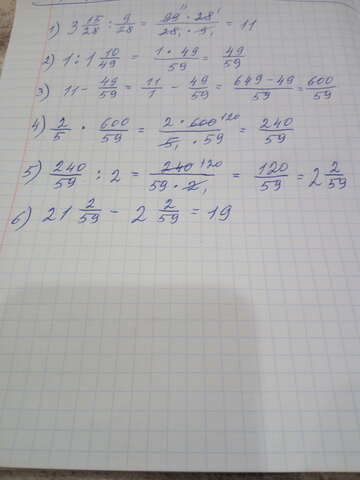 1) 3 15/28 : 9/28 = 99 · 28 / 28 · 9 = 11
2) 1 : 1 10/49 = 1 · 49 / 59 = 49/59
3) 11 - 49/59 = 11/1 - 49/59 = 649 - 49 / 59 = 600/59
4) 2/5 · 600/59 = 2 · 600 120 / 5 1 · 59 = 240/59
5) 240/59 : 2 = 240 120 / 59 · 2 1 = 120/59 = 2 2/59
6) 21 2/59 - 2 2/59 = 19